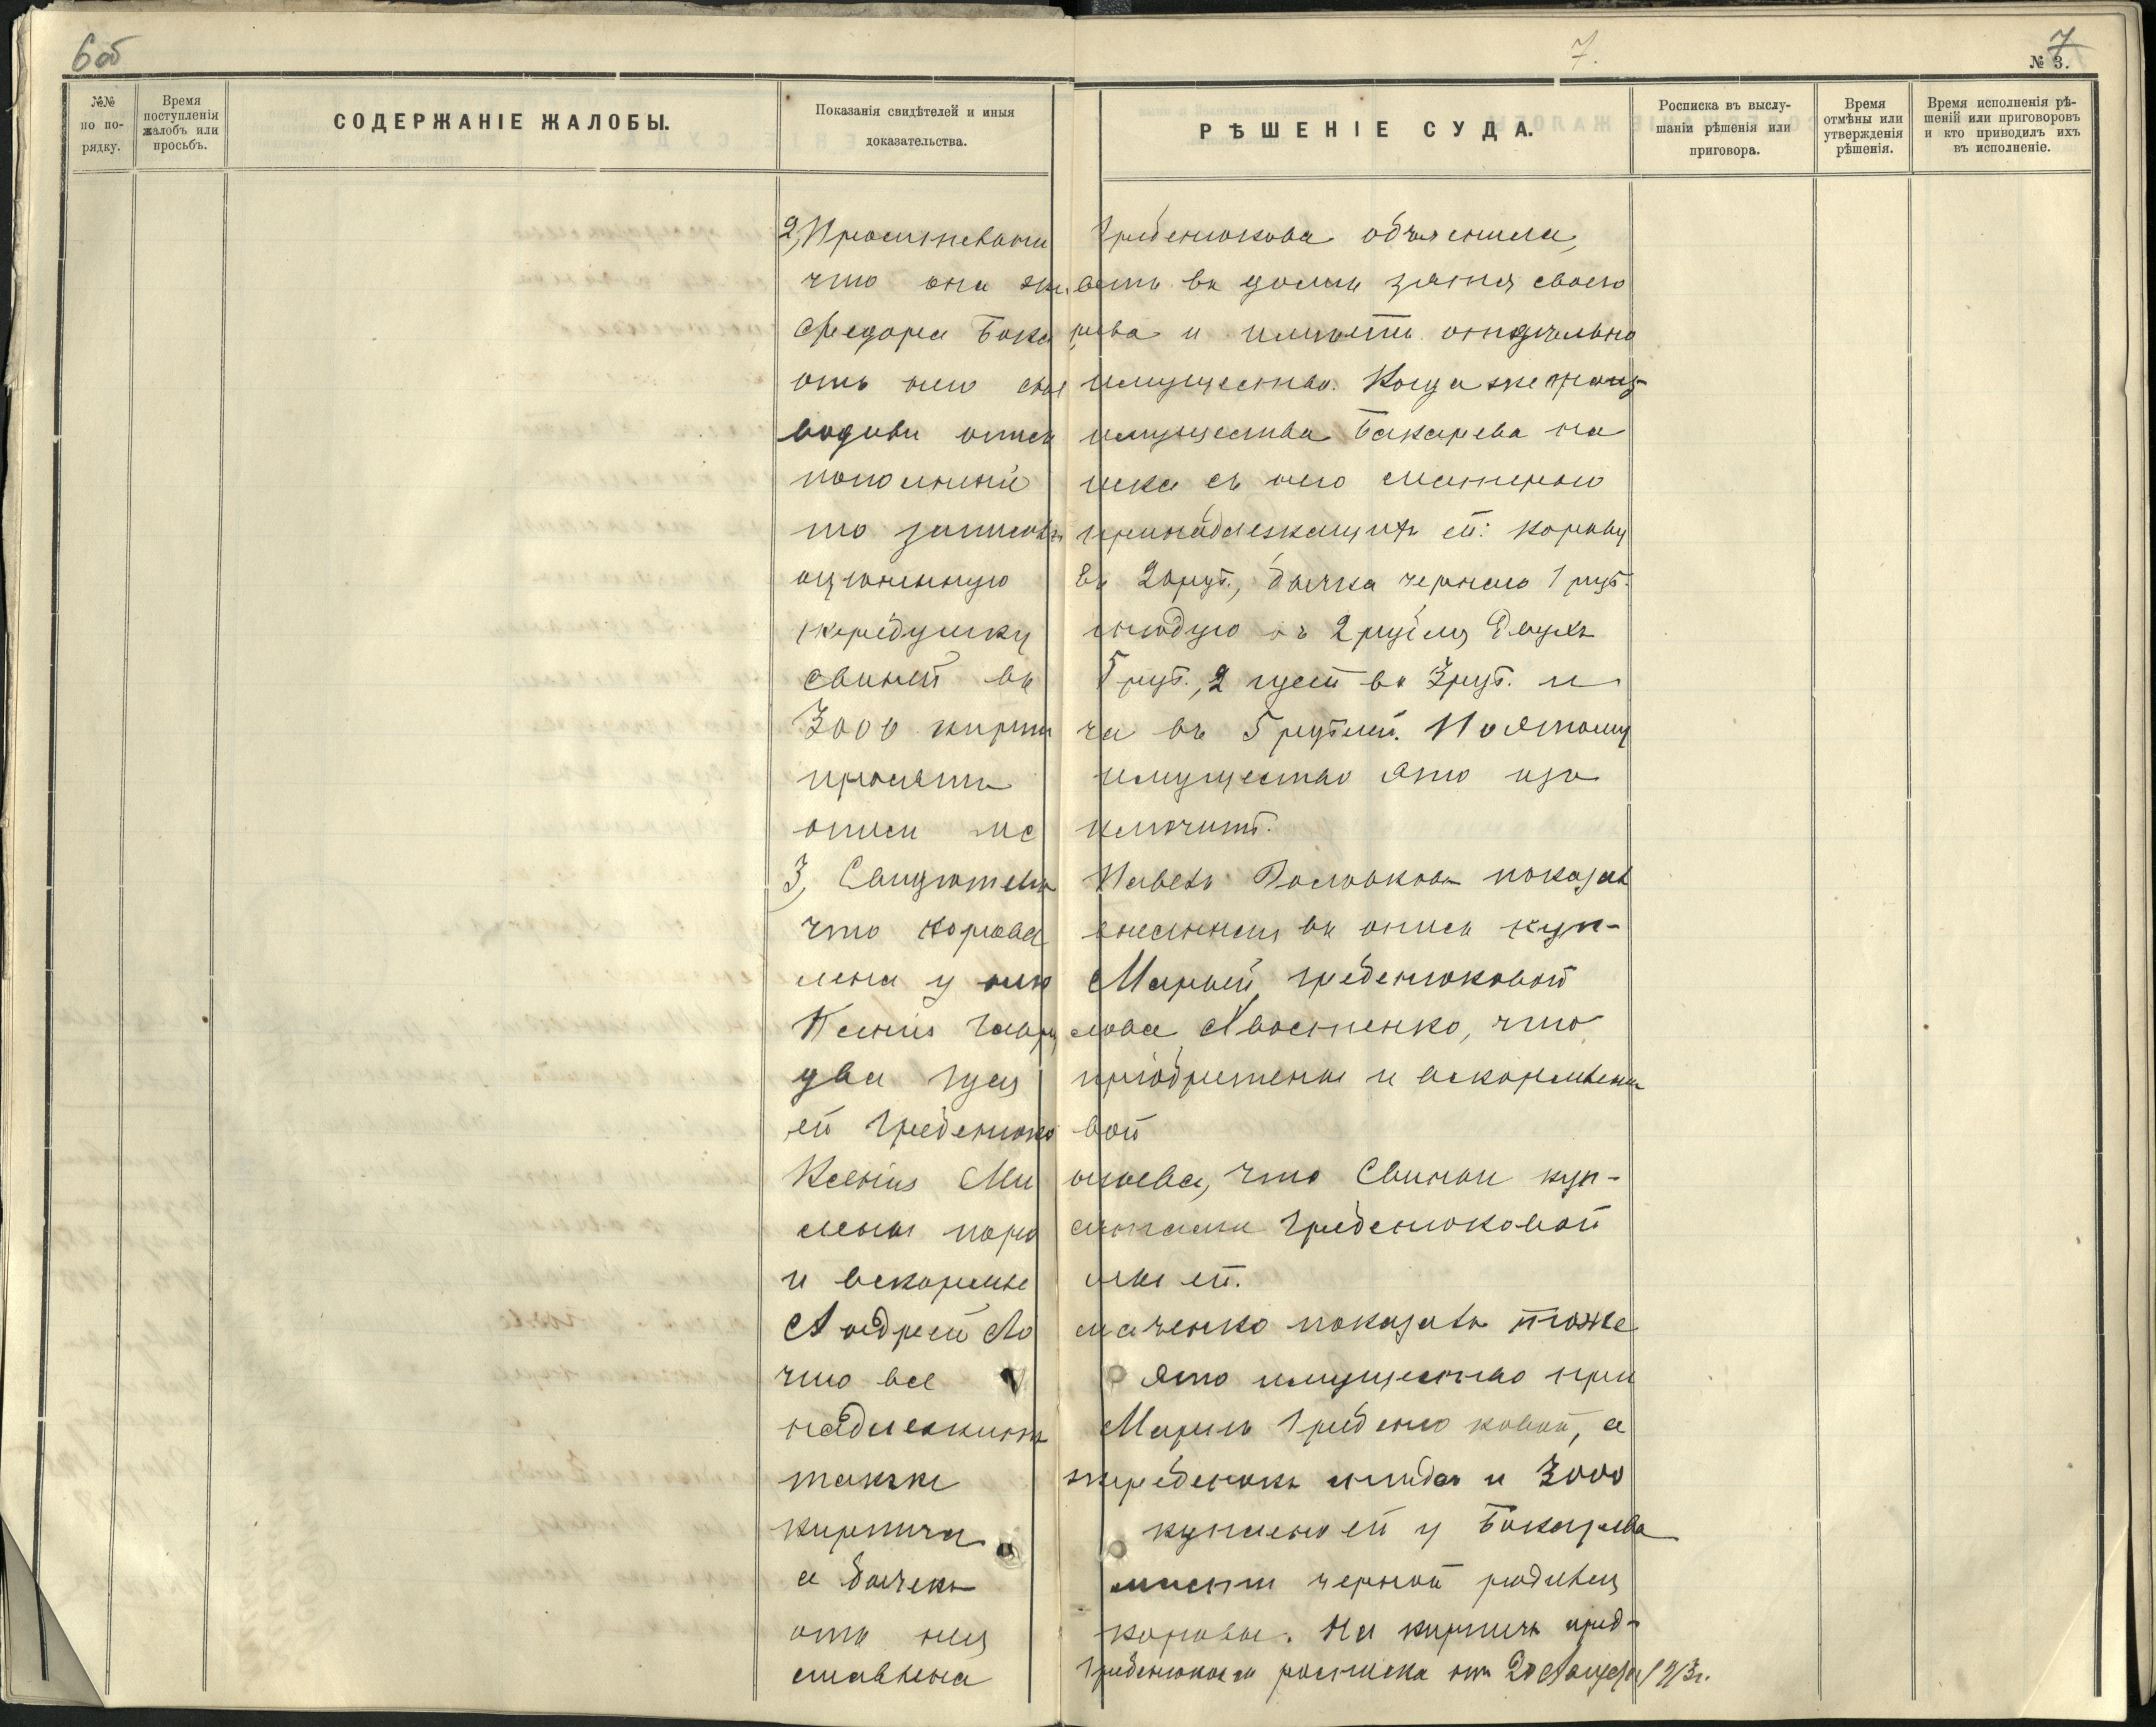 6 об
7.
7
№ 3.
№№ по по- рядку.
Время поступленія жалобъ или просьбъ.
СОДЕРЖАНІЕ ЖАЛОБЫ.
Показанія свидѣтелей и иныя доказательства.
РѢШЕНІЕ СУДА.
Росписка въ выслу- шаніи рѣшенія или приговора.
Время отмѣны или утвержденія рѣшенія.
Время исполненія рѣ- шеній или приговоровъ и кто приводилъ ихъ въ исполненіе.
2, Гребенюкова объяснила,
что она живетъ въ домѣ зятя своего
Федора Бокарева и имѣетъ отдѣльно
отъ него свое имущество. Когда же произ-
водили опись имущества Бакарева на
съ него
то записали принадлежащихъ ей: корову
оцѣненную въ 20 руб., бычка чернаго 1 руб.
жеребушку гнѣдую въ 2 рубля, двухъ
свиней въ 5 руб., 2 гусей въ 3 руб. и
3000 кирпича въ 5 рублей. Поэтому
проситъ имущество это изъ
описи исключить.
3, Свидѣтель Павелъ показалъ
что корова внесенная въ опись куп-
лена у него Маріей Гребенюковой
Ксенія Гаврилова что
два гуся пріобрѣтены и вскормлены
ей Гребенюковой
Ксенія что свиньи куп-
лены поросятами Гребенюковой
и вскормлены ей.
Андрей показалъ тоже
что все это имущество при
надлежитъ Маріи Гребенюковой, а
также жеребенокъ и 3000
кирпича куплено ей у Бокарева
а бычекъ масти черной родился
отъ нея коровы. На кирпичъ пред-
ставлена Гребенюковой росписка отъ 20 Августа 1913 г.